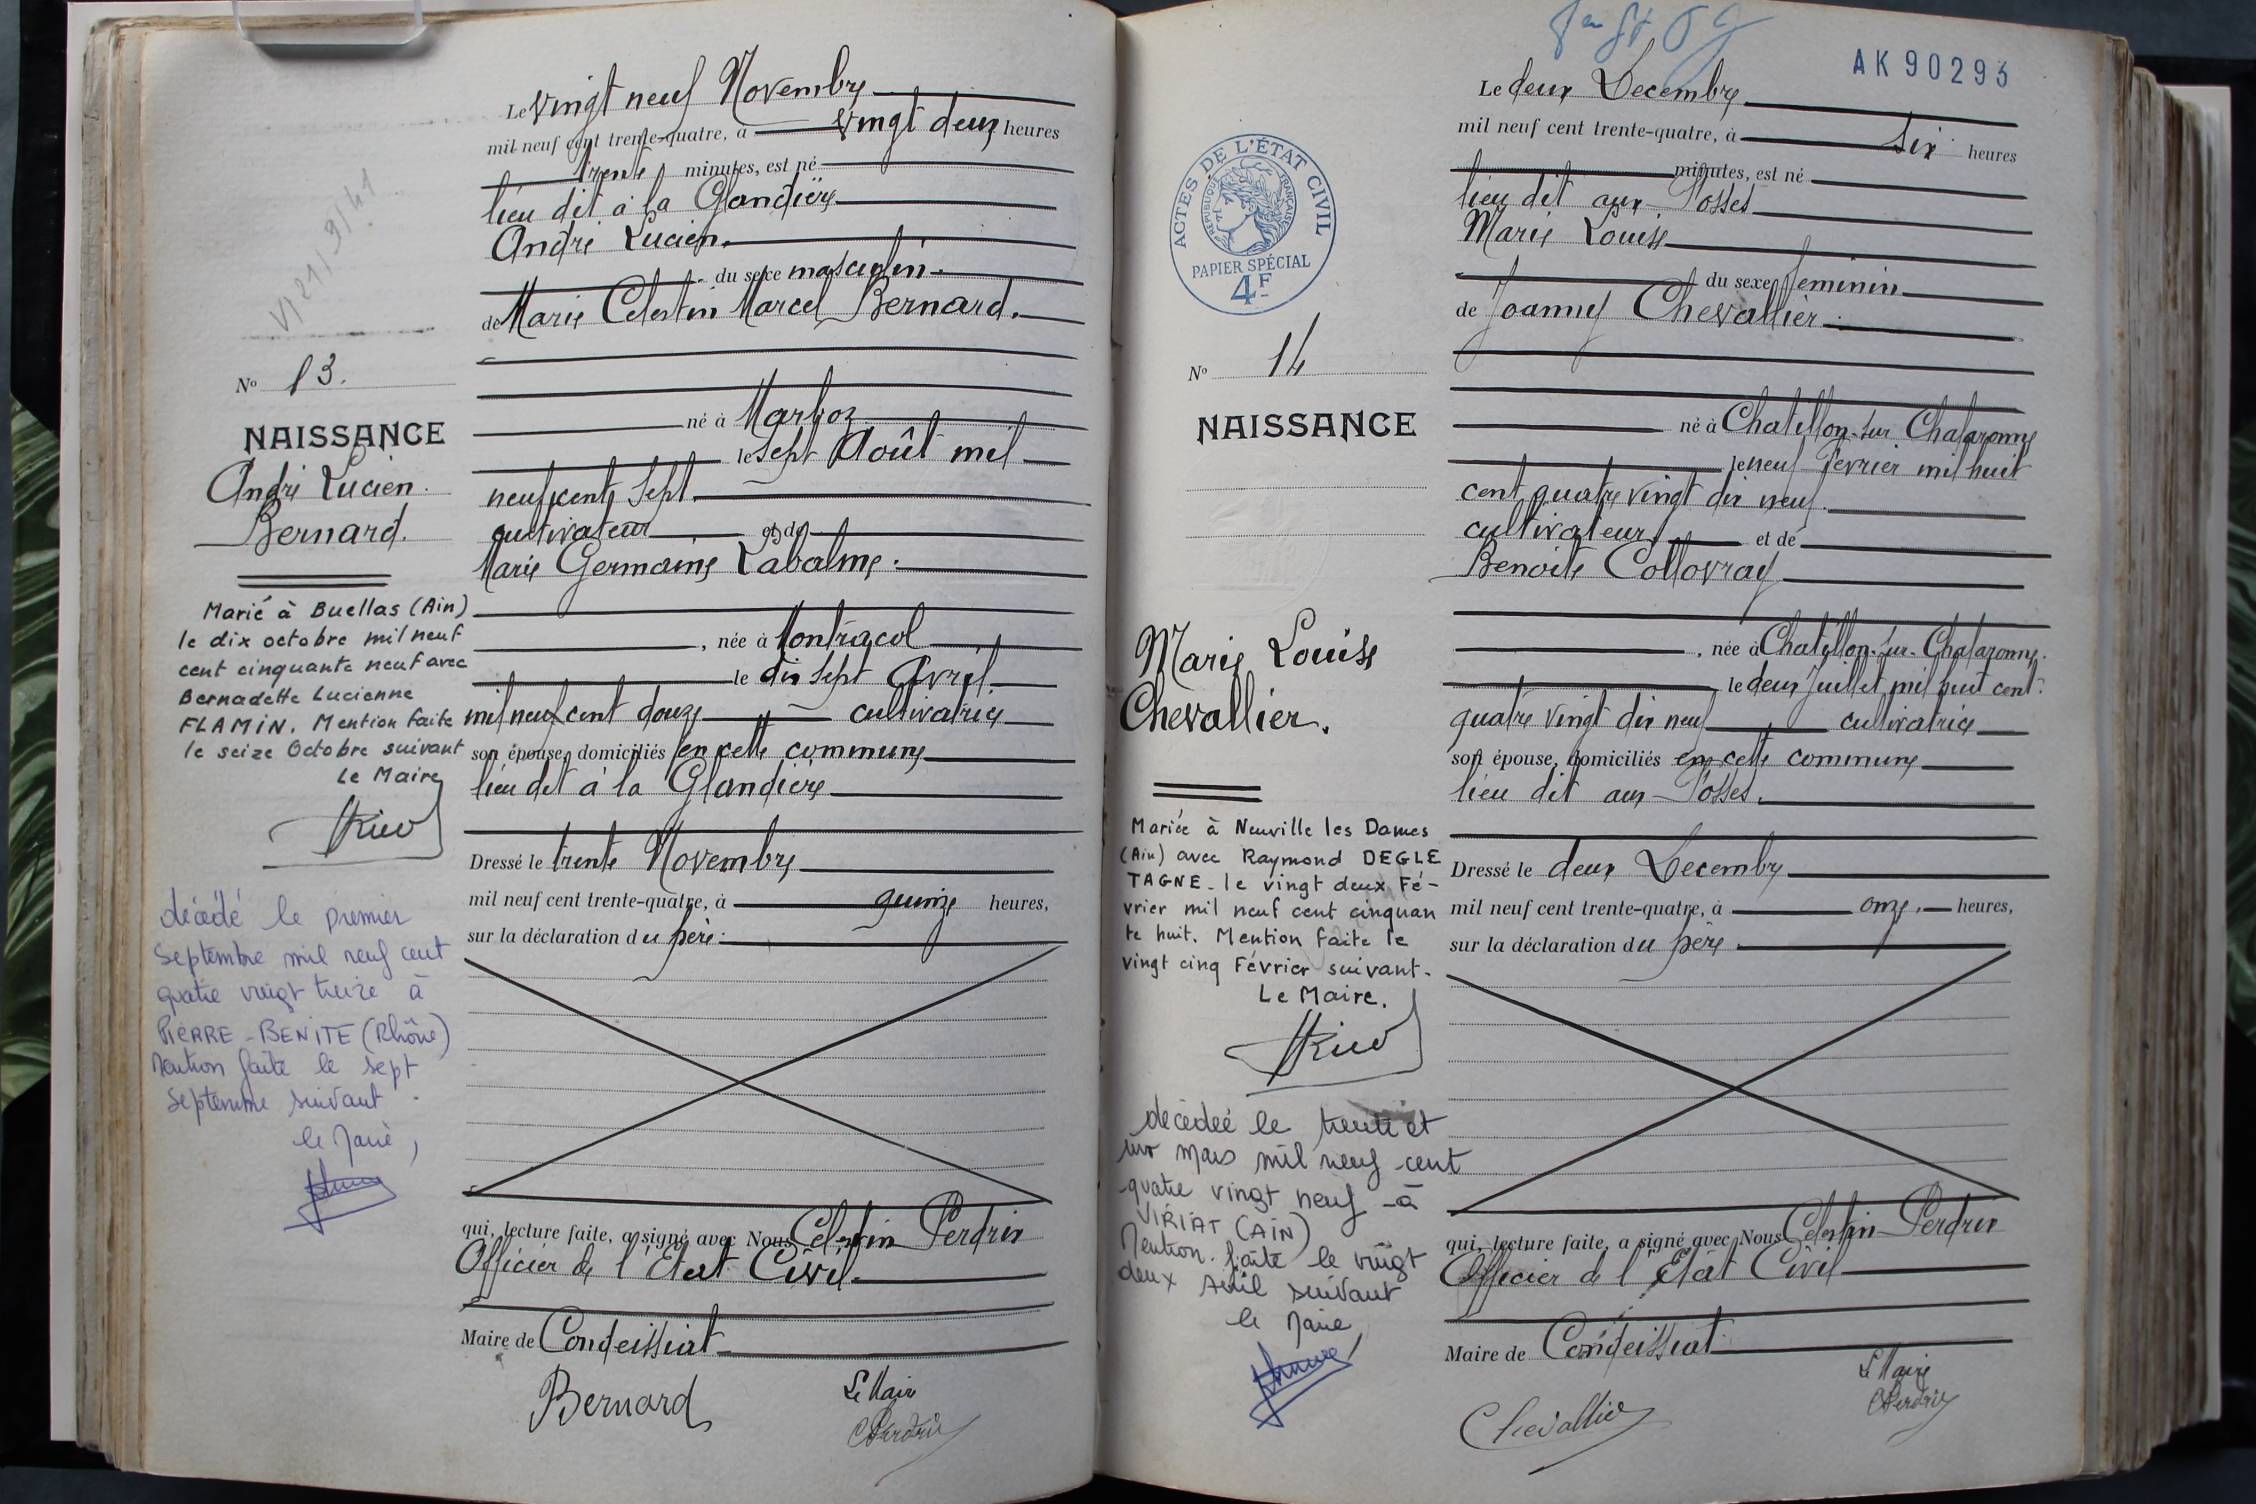 V) 21/9/41
N° 13.
NAISSANCE
André Lucien
Bernard.
Marié à Buellas (Ain)
le dix octobre mil neuf
cent cinquante neuf avec
Bernadette Lucienne
FLAMIN. Mention faite
le seize Octobre suivant
Le Maire
décédé le premier
septembre mil neuf cent
quatre vingt treize à
PIERRE-BENITE (Rhône)
Mention faite le sept
septembre suivant.
le Maire,
Le vingt neuf Novembre
mil neuf cent trente-quatre, à vingt deux heures
trente minutes, est né
lieu dit à la Glandière
André Lucien.
du sexe masculin.
de Marie Celestin Marcel Bernard.
né à Marboz
le sept Août mil
neuf cent sept
cultivateur et de
Marie Germaine Labalme.
, née à Montracol
le dix sept Avril
mil neuf cent douze cultivatrice
son épouse, domiciliés en cette commune
lieu dit à la Glandière
Dressé le trente Novembre
mil neuf cent trente-quatre, à quinze heures,
sur la déclaration du père.
qui, lecture faite, a signé avec Nous Celestin Perdrix
Officier de l'Etat Civil.
Maire de Condeissiat
Bernard
Le Maire
CPerdrix
AK90293
ACTES DE L'ÉTAT CIVIL
RÉPUBLIQUE FRANÇAISE
PAPIER SPÉCIAL
4F
N° 14
NAISSANCE
Marie Louise
Chevallier.
Mariée à Neuville les Dames
(Ain) avec Raymond DEGLE
TAGNE - le vingt deux Fé-
vrier mil neuf cent cinquan
te huit. Mention faite le
vingt cinq Février suivant.
Le Maire.
décédée le trente et
un Mars mil neuf cent
quatre vingt neuf à
VIRIAT (AIN)
Mention faite le vingt
deux Avril suivant
le Maire,
Le deux Decembre
mil neuf cent trente-quatre, à six heures
minutes, est né
lieu dit aux Fosses
Marie Louise
du sexe feminin
de Joanny Chevallier.
né à Chatillon-sur-Chalaronne
le neuf Fevrier mil huit
cent quatre vingt dix neuf.
cultivateur et de
Benoite Collovray
, née à Chatillon-sur-Chalaronne.
le deux Juillet mil huit cent
quatre vingt dix neuf, cultivatrice
son épouse, domiciliés en cette commune
lieu dit aux Fosses.
Dressé le deux Decembre
mil neuf cent trente-quatre, à onze heures,
sur la déclaration du père
qui, lecture faite, a signé avec Nous Celestin Perdrix
Officier de l'Etat Civil
Maire de Condeissiat
Chevallier
Le Maire
CPerdrix